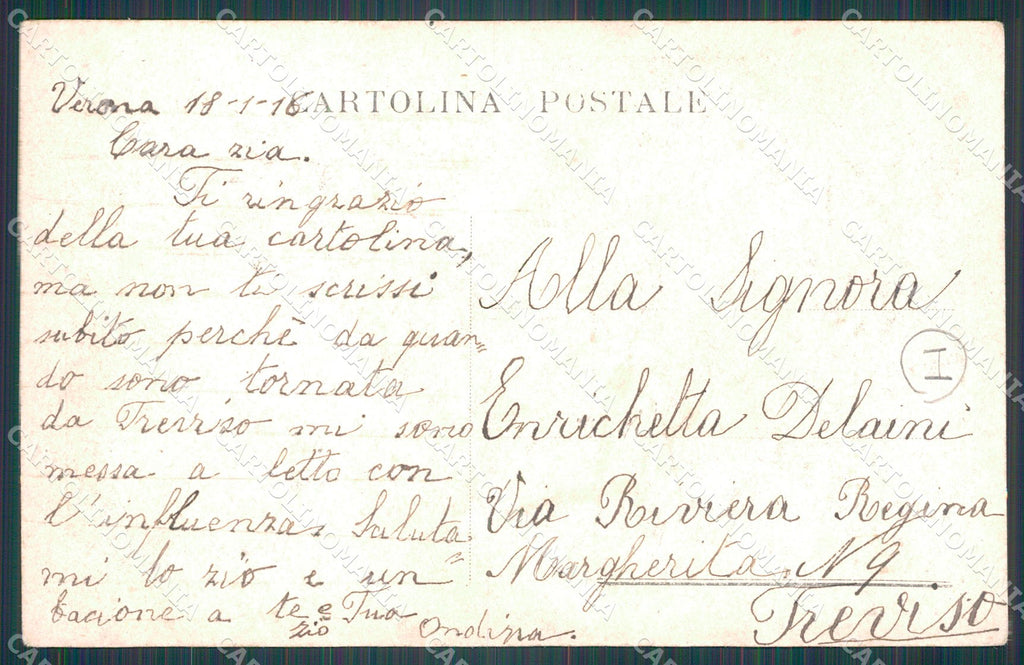 CARTOLINA POSTALE
Verona 18-1-16
Cara zia.
Ti ringrazio
della tua cartolina,
ma non ti scrissi
subito perchè da quan=
do sono tornata
da Treviso mi sono
messa a letto con
l'influenza. Saluta=
mi lo zio e un
bacione a te e zio Tua
Ondina.
Alla Signora
Enrichetta Delaini
Via Riviera Regina
Margherita N 9
Treviso
I
CARTOLINOMANIA